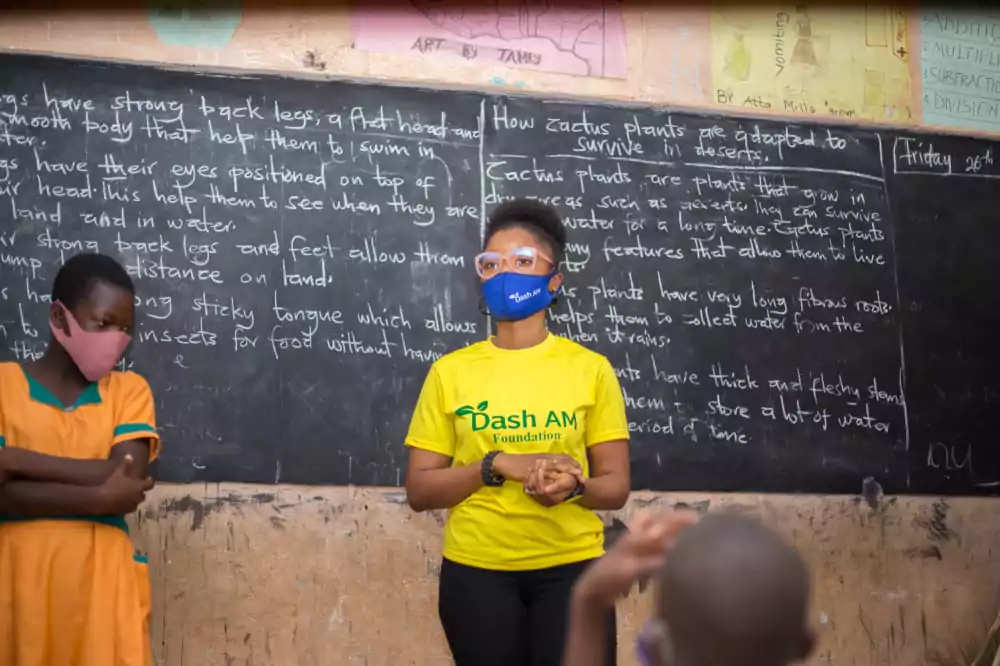 ART BY TAMIY
vomiting
By Atta Mills group
ADDITIO
MULTIPL
SUBTRACTI
DIVISION
gs have strong back legs, a flat head and
smooth body that help them to swim in
ter.
gs have their eyes positioned on top of
ir head. This help them to see when they are
land and in water.
ir strong back legs and feet allow them
ump distance on land.
s ha ong sticky tongue which allows
insects for food without havin
How Cactus plants are adapted to
survive in deserts.
Cactus plants are plants that grow in
areas such as deserts. They can survive
water for a long time. Cactus plants
ny features that allow them to live
s plants have very long fibrous roots.
helps them to collect water from the
when it rains.
nts have thick and fleshy stems
hem to store a lot of water
period of time
Friday 26th
Dash AM
Dash AM
Foundation